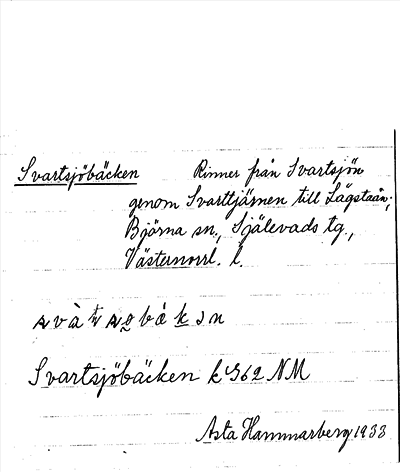 Svartsjöbäcken Rinner från Svartsjön
genom Svarttjärnen till Lägstaån;
Björna sn., Själevads tg.,
Västernorrl. l.
Svartsjöbäcken k 362 NM
Asta Hammarberg 1933